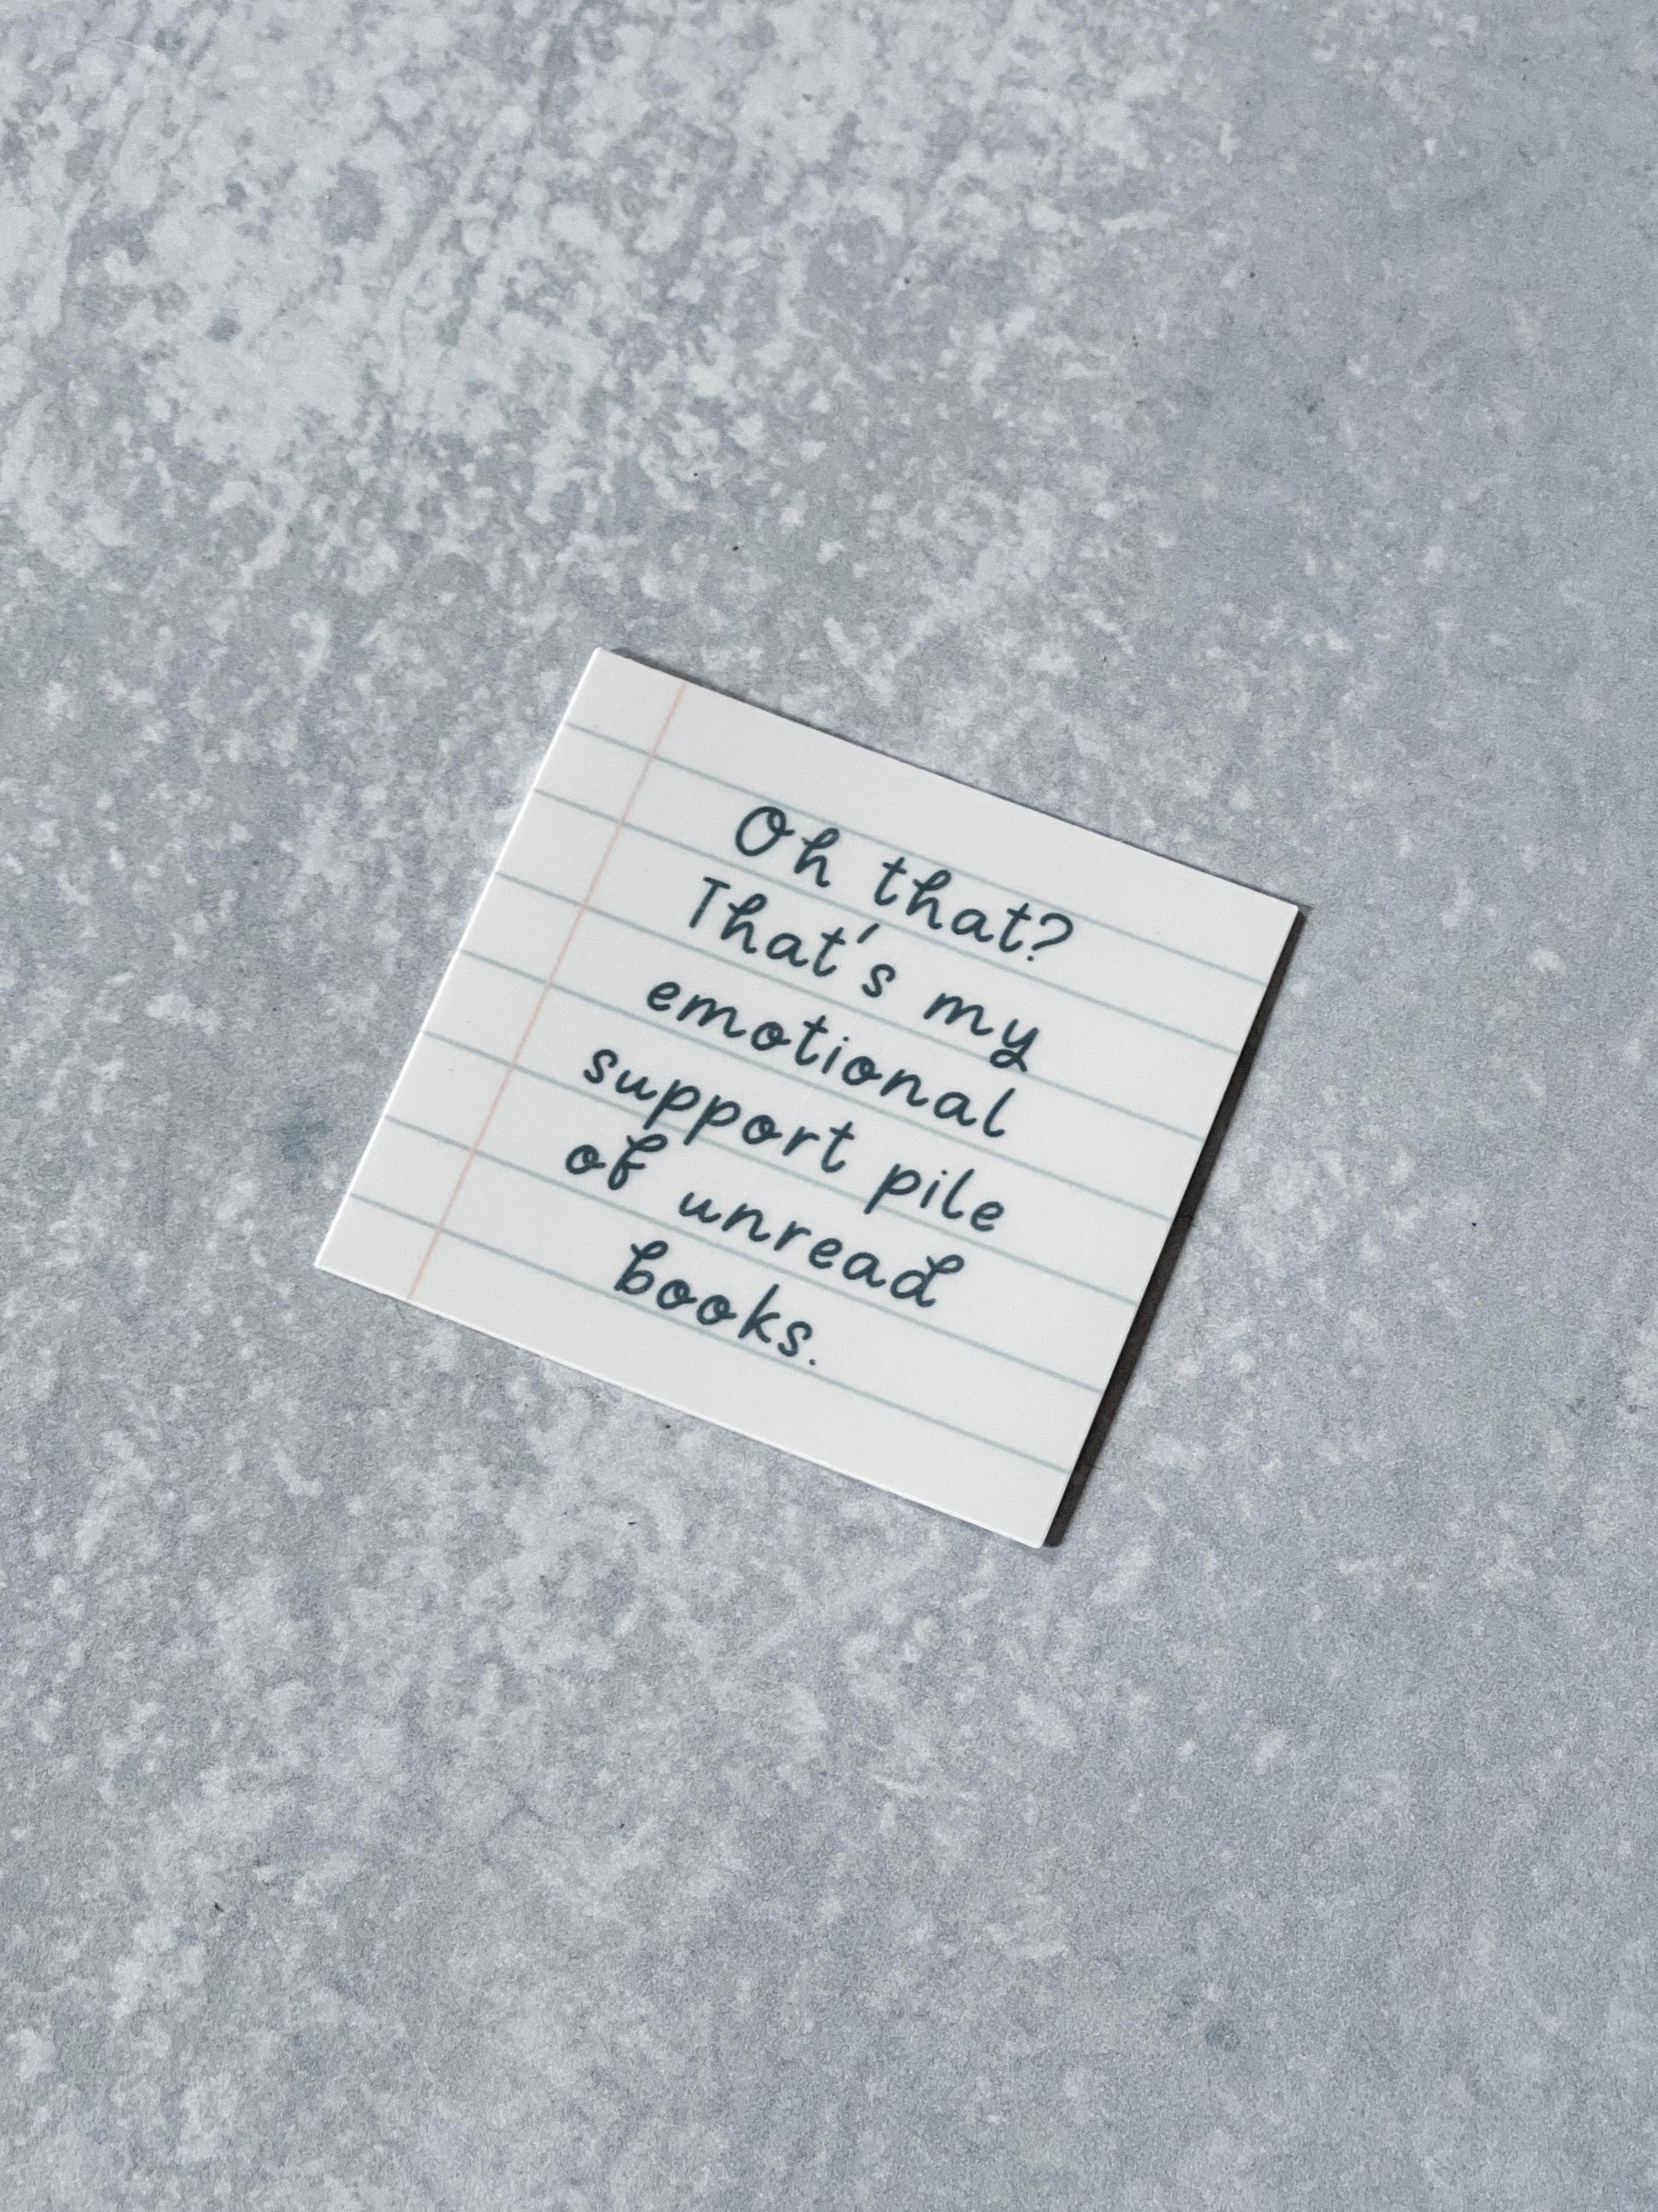 Oh that?
That's my
emotional
support pile
of unread
books.